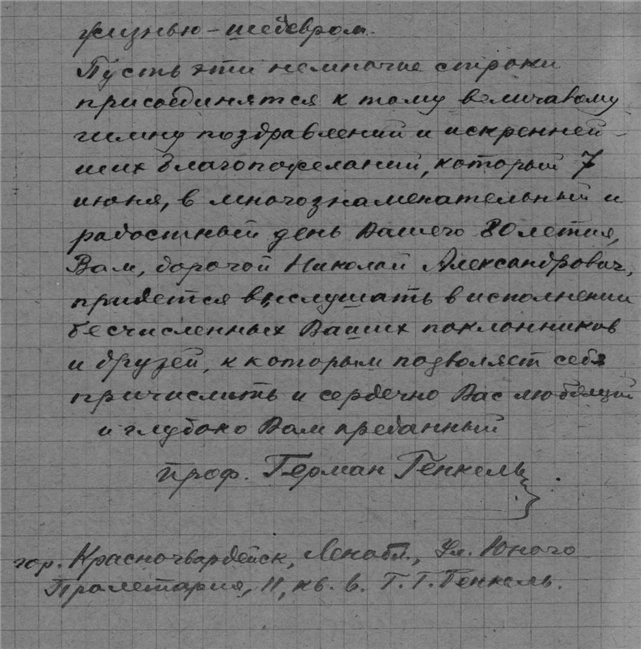 жизнью – шедевром.
Пусть эти немногие строки
присоединятся к тому величавому
гимну поздравлений и искренней-
ших благопожеланий, который 7
июня, в многознаменательный и
радостный день Вашего 80летия,
Вам, дорогой Николай Александрович,
придется выслушать в исполнении
бесчисленных Ваших поклонников
и друзей, к которым позволяет себе
причислить и сердечно Вас любящий
и глубоко Вам преданный
проф. Герман Генкель
гор. Красногвардейск, Ленобл., Ул. Юного
Пролетария, 11, кв. 6. Г. Г. Генкель.